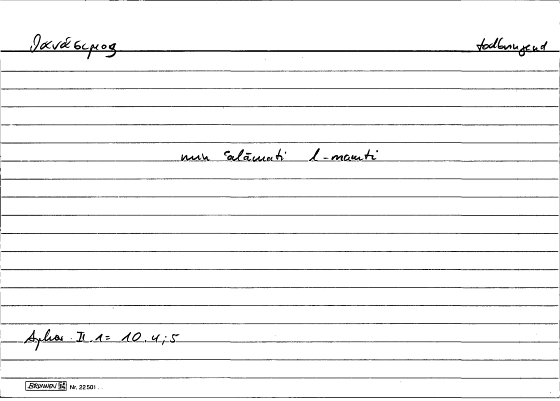 θανάσιμος todbringend
min ʿalāmati l-mauti
Aphor. II 1 = 10.4;5
BRUNNEN Nr. 22501